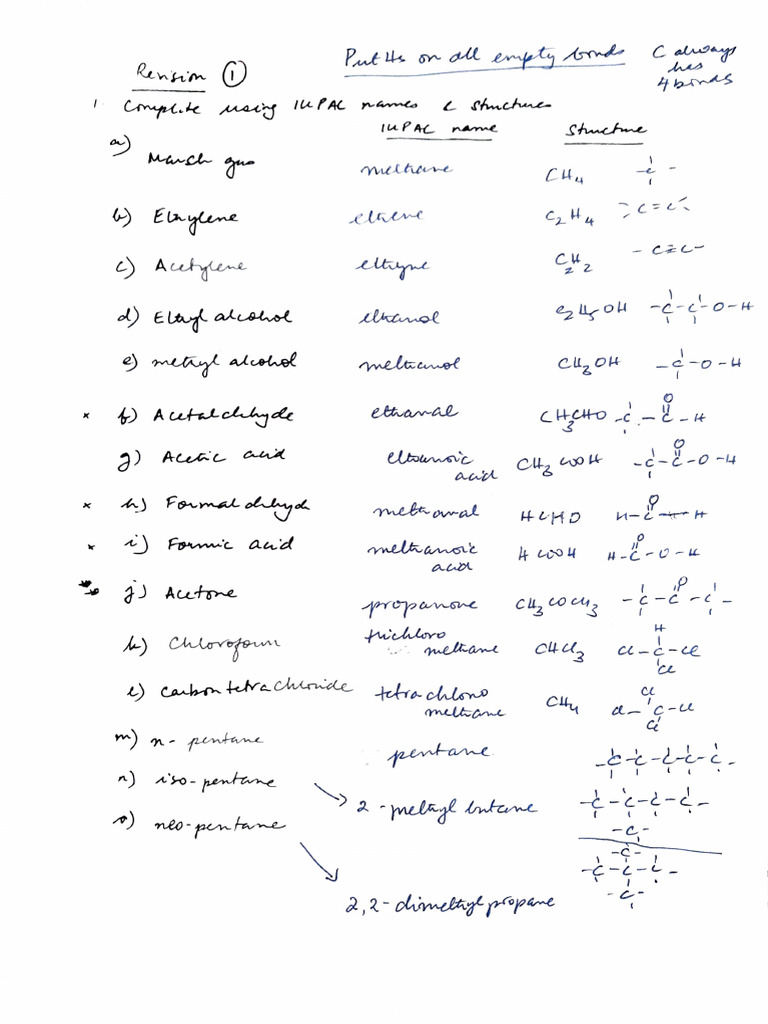 Revision ① Put Hs on all empty bonds C always
has
4 bonds
1. Complete using IUPAC names & structures
IUPAC name Structure
a) Marsh gas methane CH4 -C-
b) Ethylene ethene C2H4 C=C
c) Acetylene ethyne C2H2 -C≡C-
d) Ethyl alcohol ethanol C2H5OH -C-C-O-H
e) methyl alcohol methanol CH3OH -C-O-H
x f) Acetaldehyde ethanal CH3CHO -C-C-H
O
g) Acetic acid ethanoic acid CH3COOH -C-C-O-H
O
x h) Formaldehyde methanal HCHO H-C-H
O
x i) Formic acid methanoic acid HCOOH H-C-O-H
O
j) Acetone propanone CH3COCH3 -C-C-C-
O
k) Chloroform trichloro methane CHCl3 Cl-C-Cl
H
Cl
l) Carbon tetrachloride tetrachloro methane Cl-C-Cl
Cl
Cl
m) n-pentane pentane -C-C-C-C-C-
n) iso-pentane 2-methyl butane -C-C-C-C-
-C-
o) neo-pentane 2,2-dimethyl propane -C-
-C-C-C-
-C-